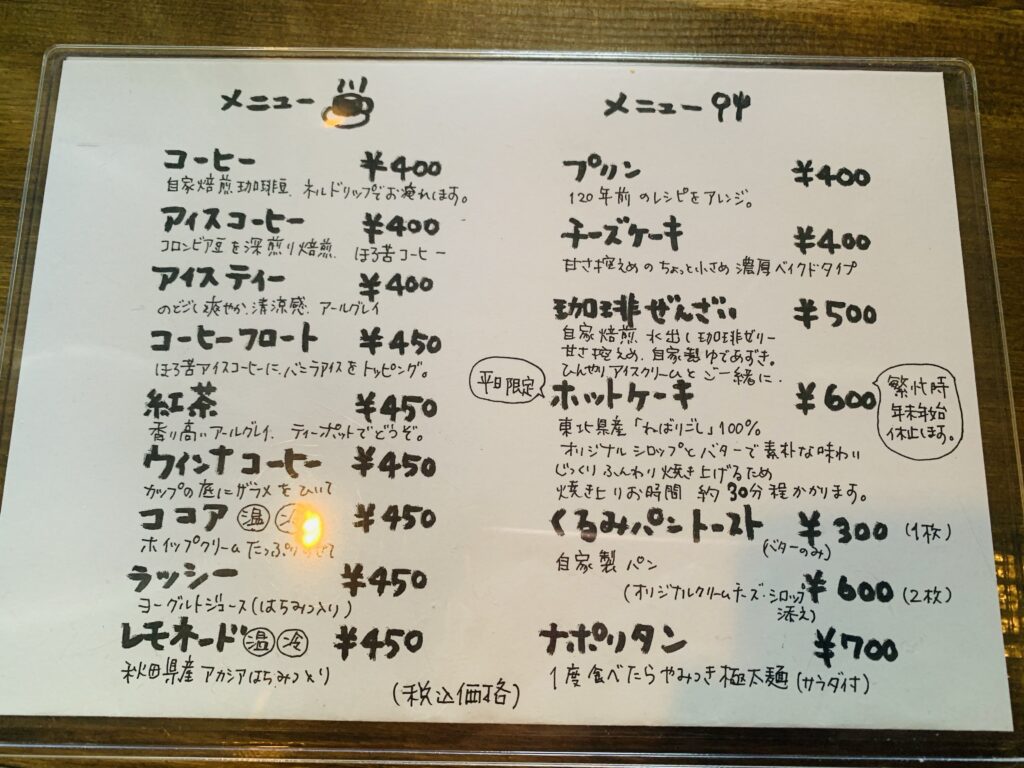 メニュー
コーヒー ¥400
自家焙煎珈琲豆、ネルドリップでお淹れします。
アイスコーヒー ¥400
コロンビア豆を深煎り焙煎、ほろ苦コーヒー
アイスティー ¥400
のどごし爽やか、清涼感、アールグレイ
コーヒーフロート ¥450
ほろ苦アイスコーヒーに、バニラアイスをトッピング。
紅茶 ¥450
香り高いアールグレイ、ティーポットでどうぞ。
ウインナコーヒー ¥450
カップの底にザラメをひいて
ココア 温 冷 ¥450
ホイップクリームたっぷりのせて
ラッシー ¥450
ヨーグルトジュース(はちみつ入り)
レモネード 温 冷 ¥450
秋田県産アカシアはちみつ入り
(税込価格)
メニュー
プリン ¥400
120年前のレシピをアレンジ。
チーズケーキ ¥400
甘さ控えめのちょっと小さめ濃厚ベイクドタイプ
珈琲ぜんざい ¥500
自家焙煎、水出し珈琲ゼリー
甘さ控えめ、自家製ゆであずき。
ひんやりアイスクリームとご一緒に、
平日限定
ホットケーキ ¥600
繁忙時
年末年始
休止します。
東北県産「ねばりごし」100%
オリジナルシロップとバターで素朴な味わい
じっくりふんわり焼き上げるため
焼き上りお時間 約30分程かかります。
くるみパントースト ¥300 (1枚)
(バターのみ)
自家製パン
(オリジナルクリームチーズ・シロップ ¥600 (2枚)
添え)
ナポリタン ¥700
1度食べたらやみつき極太麺(サラダ付)